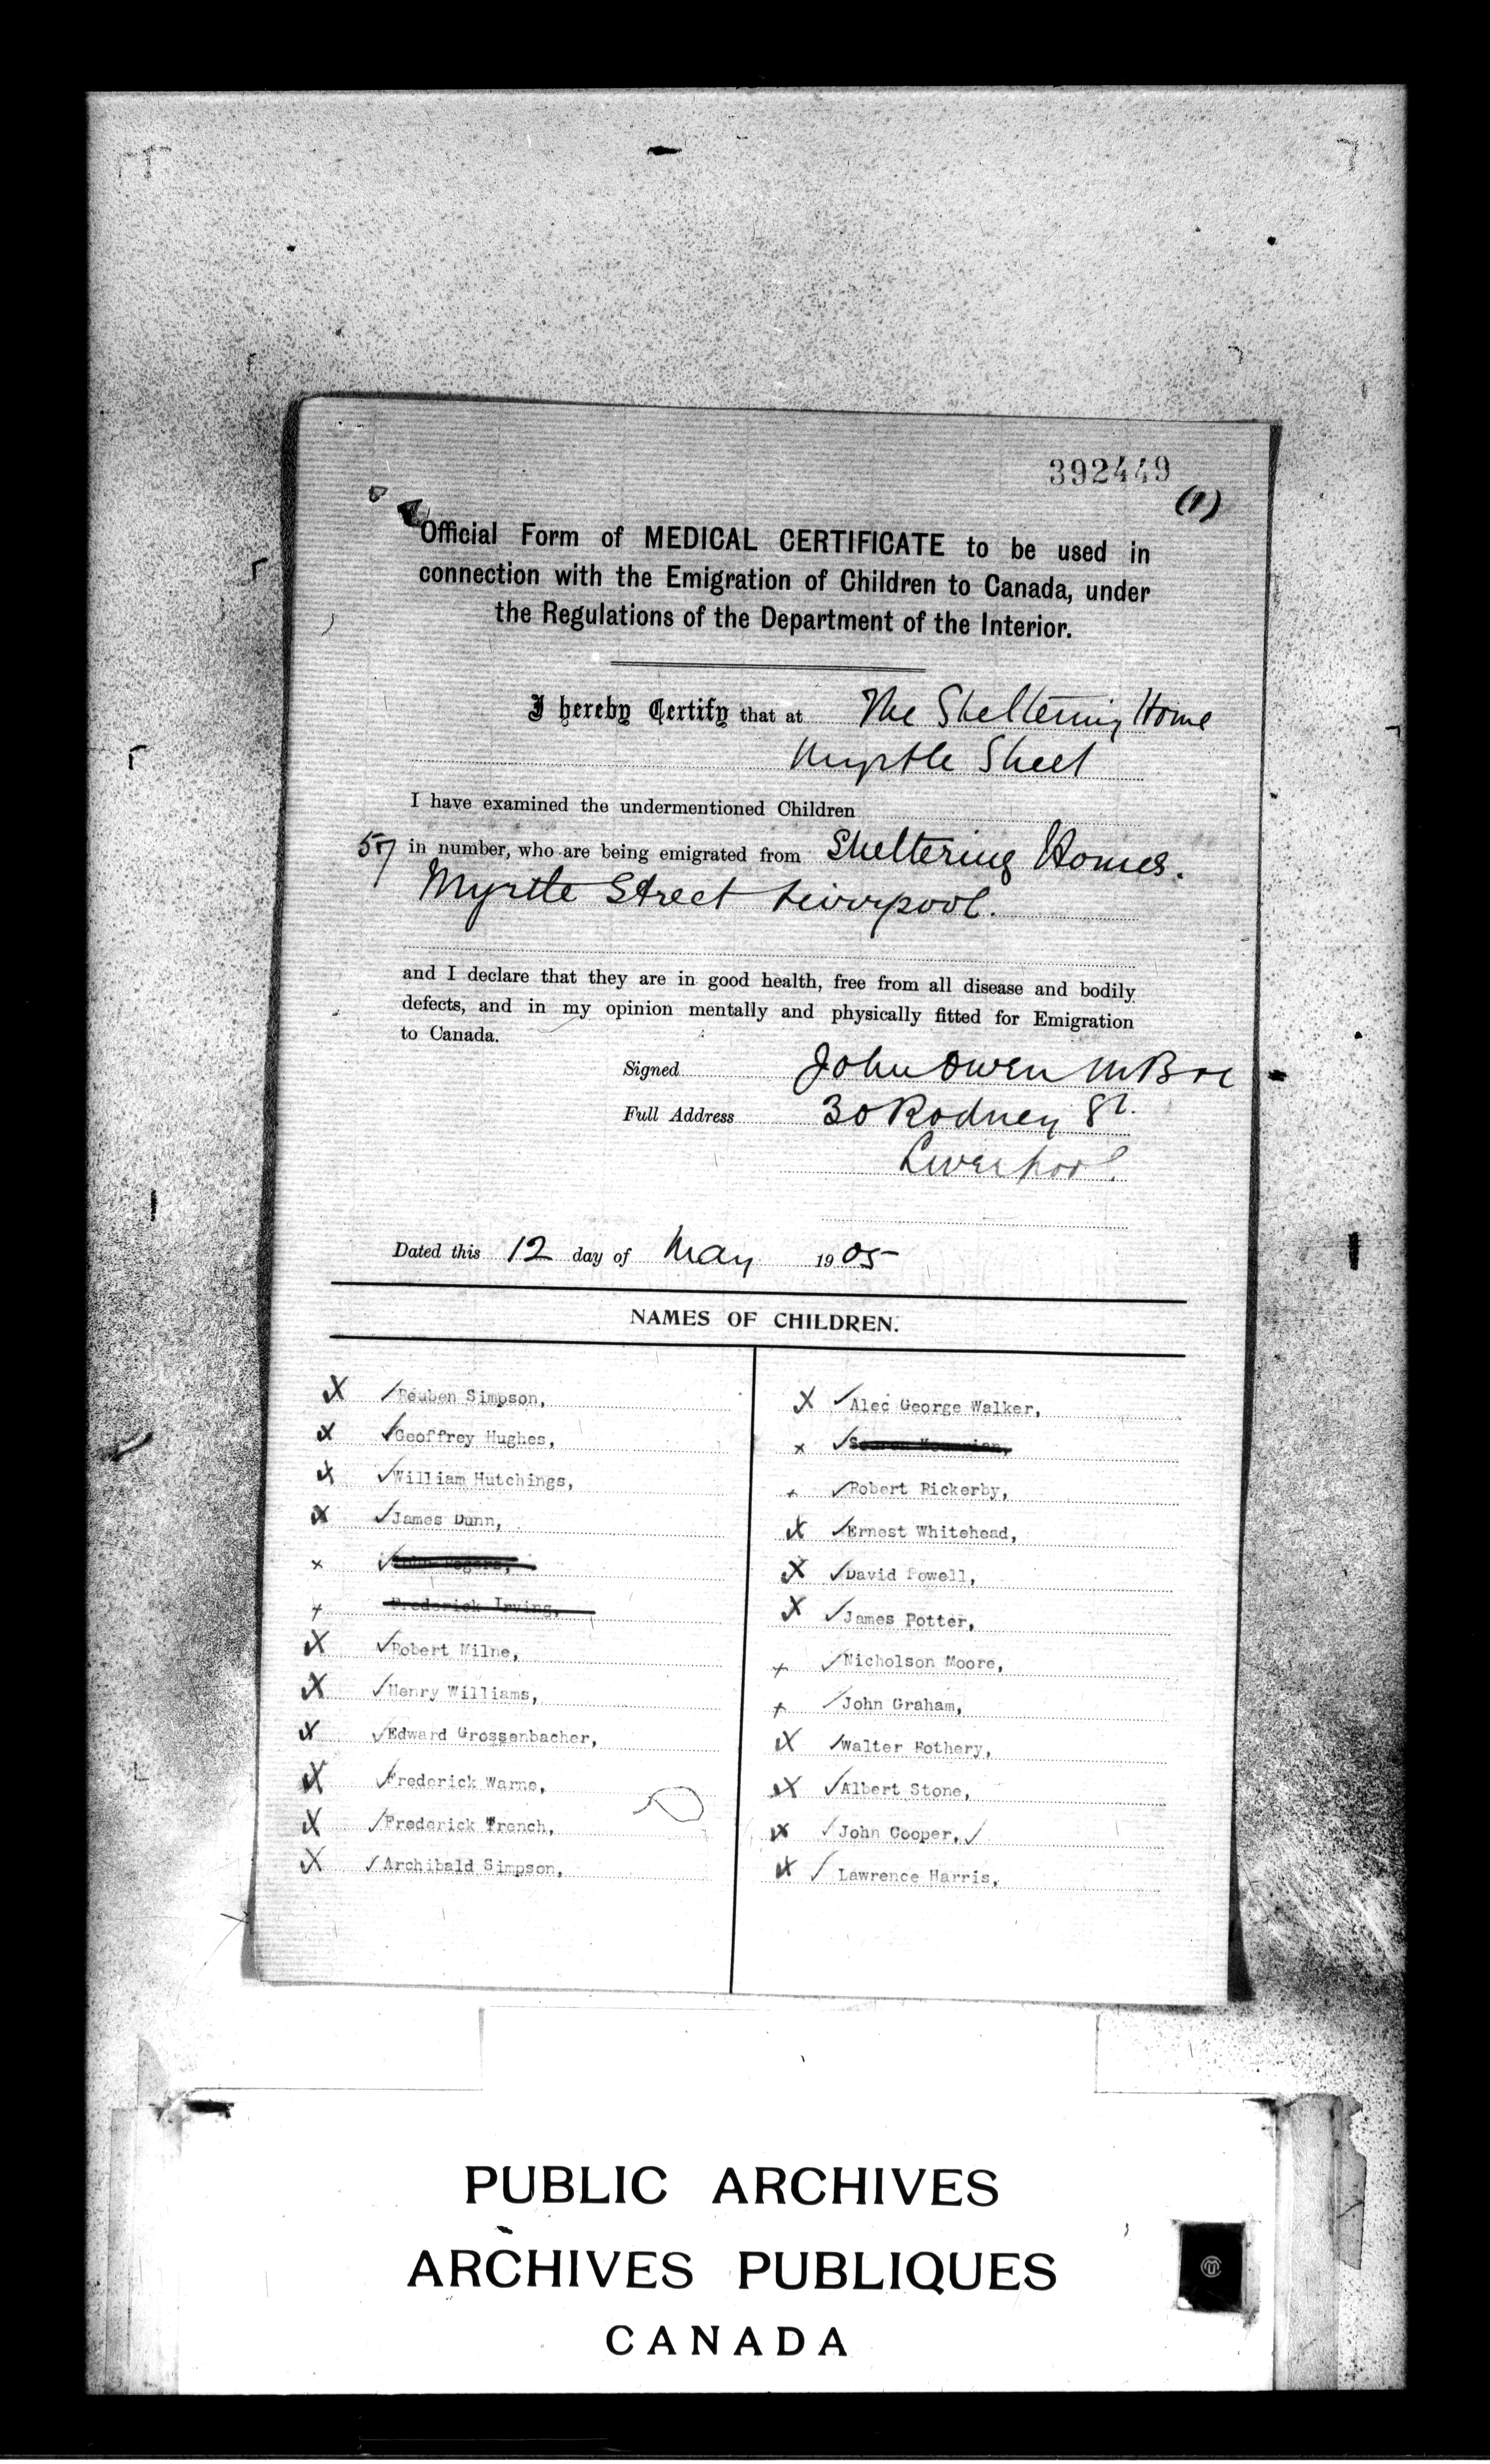 392449
(1)
Official Form of MEDICAL CERTIFICATE to be used in
connection with the Emigration of Children to Canada, under
the Regulations of the Department of the Interior.
I hereby Certify that at The Sheltering Home
Myrtle Street
I have examined the undermentioned Children
57 in number, who are being emigrated from Sheltering Homes.
Myrtle Street Liverpool.
and I declare that they are in good health, free from all disease and bodily
defects, and in my opinion mentally and physically fitted for Emigration
to Canada.
Signed John Owen MB
Full Address 30 Rodney St.
Liverpool.
Dated this 12 day of May 1905
NAMES OF CHILDREN.
X ✓Reuben Simpson,
X ✓Geoffrey Hughes,
X ✓William Hutchings,
X ✓James Dunn,
x ✓ Rogers,
x Frederick Irving,
X ✓Robert Milne,
X ✓Henry Williams,
X ✓Edward Grossenbacher,
X ✓Frederick Warne,
X ✓Frederick Trench,
X ✓Archibald Simpson,
X ✓Alec George Walker,
x ✓
x ✓Robert Rickerby,
X ✓Ernest Whitehead,
X ✓David Powell,
X ✓James Potter,
x ✓Nicholson Moore,
x ✓John Graham,
X ✓Walter Rothery,
X ✓Albert Stone,
X ✓John Cooper, ✓
X ✓Lawrence Harris,
PUBLIC ARCHIVES
ARCHIVES PUBLIQUES
CANADA